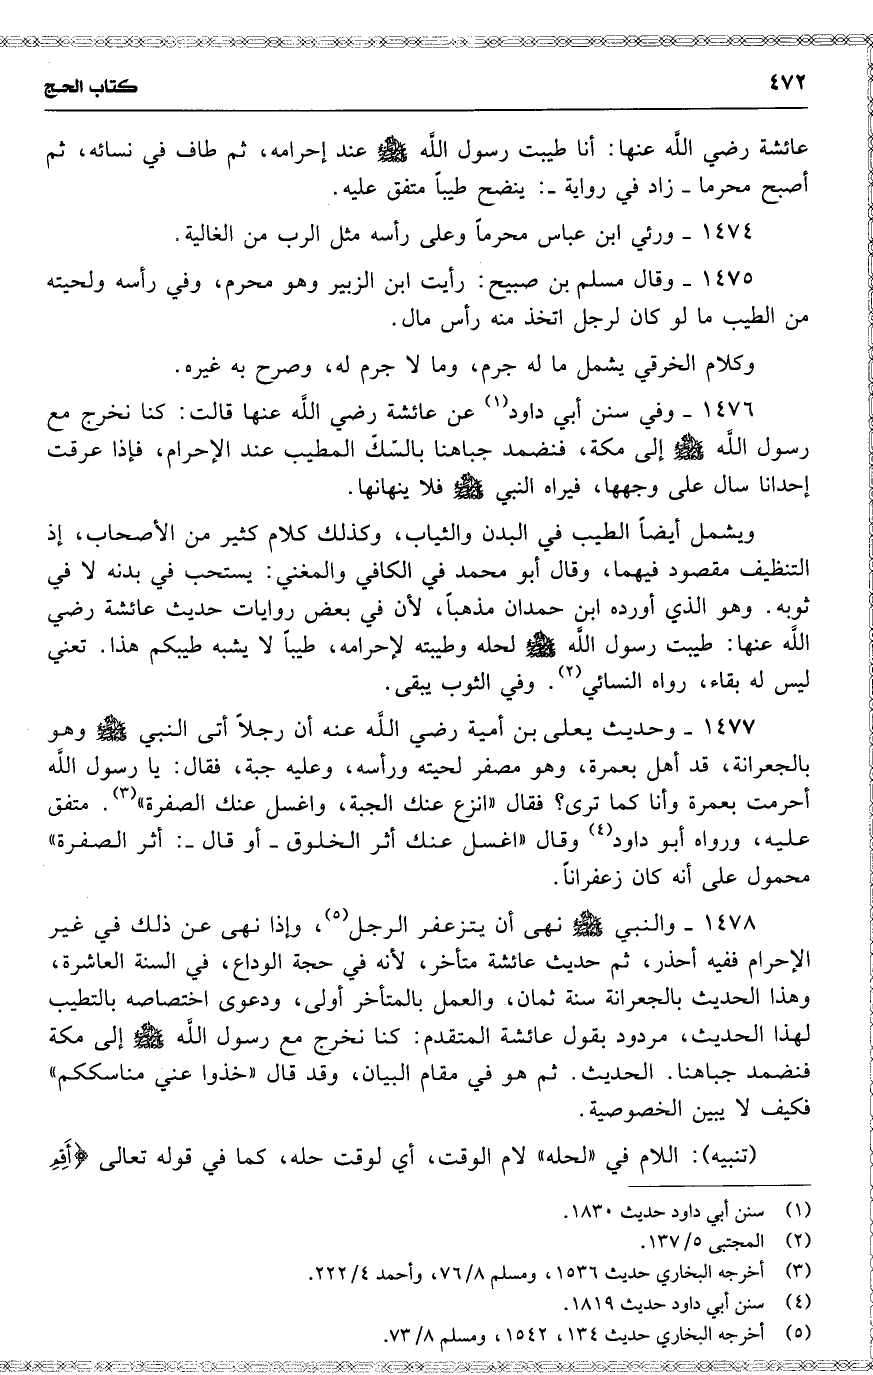 ٤٧٢
كتاب الحـج
عائشة رضي اللَّه عنها: أنا طيبت رسول اللَّه ﷺ عند إحرامه، ثم طاف في نسائه، ثم
أصبح محرما ـ زاد في رواية ـ: ينضح طيباً متفق عليه.
١٤٧٤ ـ ورئي ابن عباس محرماً وعلى رأسه مثل الرب من الغالية.
١٤٧٥ ـ وقال مسلم بن صبيح: رأيت ابن الزبير وهو محرم، وفي رأسه ولحيته
من الطيب ما لو كان لرجل اتخذ منه رأس مال.
وكلام الخرقي يشمل ما له جرم، وما لا جرم له، وصرح به غيره.
١٤٧٦ ـ وفي سنن أبي داود(١) عن عائشة رضي اللَّه عنها قالت: كنا نخرج مع
رسول اللَّه ﷺ إلى مكة، فنضمد جباهنا بالسّكّ المطيب عند الإحرام، فإذا عرقت
إحدانا سال على وجهها، فيراه النبي ﷺ فلا ينهانها.
ويشمل أيضاً الطيب في البدن والثياب، وكذلك كلام كثير من الأصحاب، إذ
التنظيف مقصود فيهما، وقال أبو محمد في الكافي والمغني: يستحب في بدنه لا في
ثوبه. وهو الذي أورده ابن حمدان مذهباً، لأن في بعض روايات حديث عائشة رضي
اللَّه عنها: طيبت رسول اللَّه ﷺ لحله وطيبته لإحرامه، طيباً لا يشبه طيبكم هذا. تعني
ليس له بقاء، رواه النسائي(٢). وفي الثوب يبقى.
١٤٧٧ ـ وحديث يعلى بن أمية رضي اللَّه عنه أن رجلاً أتى النبي ﷺ وهو
بالجعرانة، قد أهل بعمرة، وهو مصفر لحيته ورأسه، وعليه جبة، فقال: يا رسول اللَّه
أحرمت بعمرة وأنا كما ترى؟ فقال «انزع عنك الجبة، واغسل عنك الصفرة»(٣). متفق
عليه، ورواه أبو داود(٤) وقال «اغسل عنك أثر الخلوق ـ أو قال ـ: أثر الصفرة»
محمول على أنه كان زعفراناً.
١٤٧٨ ـ والنبي ﷺ نهى أن يتزعفر الرجل(٥)، وإذا نهى عن ذلك في غير
الإحرام ففيه أحذر، ثم حديث عائشة متأخر، لأنه في حجة الوداع، في السنة العاشرة،
وهذا الحديث بالجعرانة سنة ثمان، والعمل بالمتأخر أولى، ودعوى اختصاصه بالتطيب
لهذا الحديث، مردود بقول عائشة المتقدم: كنا نخرج مع رسول اللَّه ﷺ إلى مكة
فنضمد جباهنا. الحديث. ثم هو في مقام البيان، وقد قال «خذوا عني مناسككم»
فكيف لا يبين الخصوصية.
(تنبيه): اللام في «لحله» لام الوقت، أي لوقت حله، كما في قوله تعالى ﴿أَقِمِ
(١) سنن أبي داود حديث ١٨٣٠.
(٢) المجتبى ١٣٧/٥.
(٣) أخرجه البخاري حديث ١٥٣٦، ومسلم ٧٦/٨، وأحمد ٢٢٢/٤.
(٤) سنن أبي داود حديث ١٨١٩.
(٥) أخرجه البخاري حديث ١٣٤، ١٥٤٢، ومسلم ٧٣/٨.